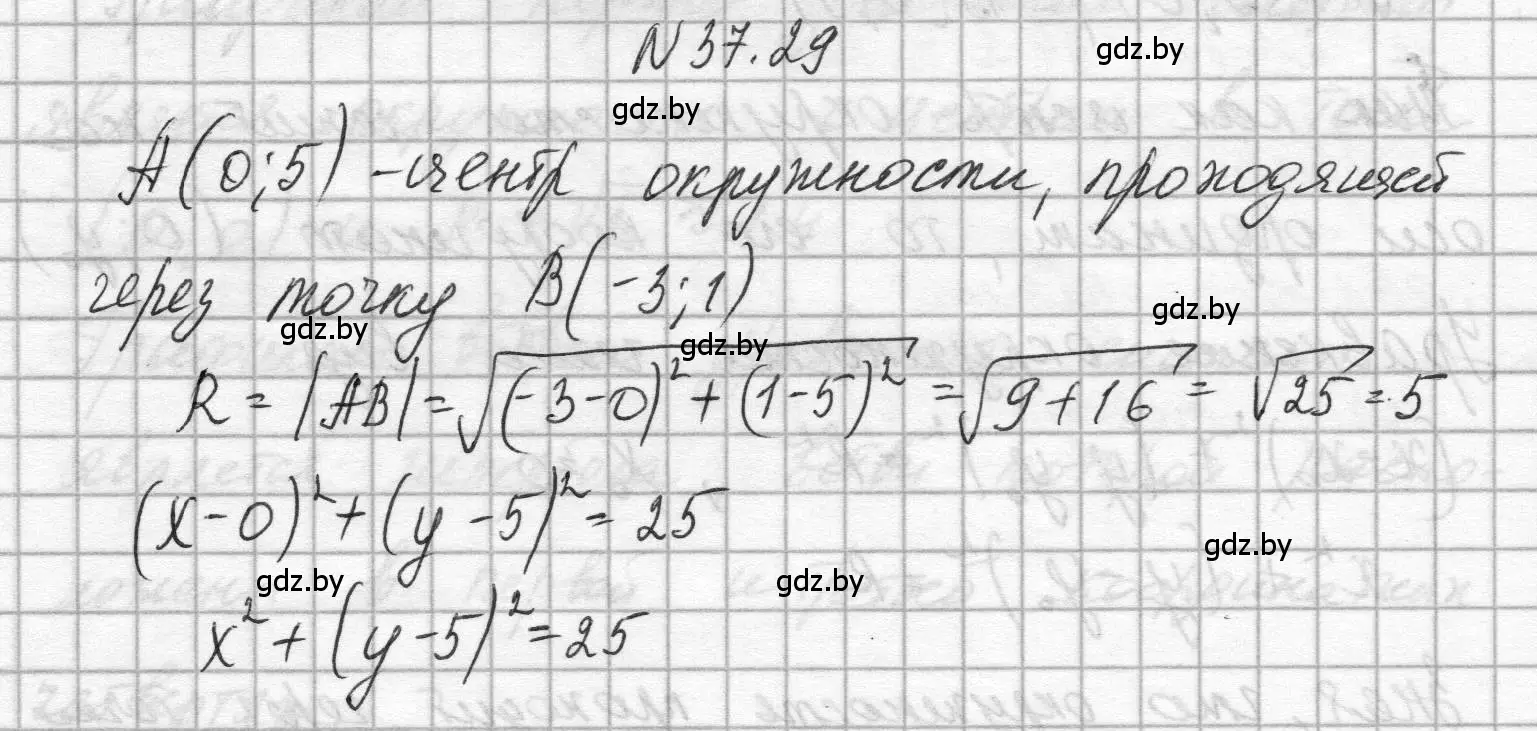 N 37.29
gdz.by
gdz.by
A(0;5) - центр окружности, проходящей
через точку B(-3;1)
gdz.by
gdz.by
gdz.by
R = |AB| = √((-3-0)² + (1-5)²) = √(9+16) = √25 = 5
(x-0)² + (y-5)² = 25
gdz.by
gdz.by
gdz.by
x² + (y-5)² = 25